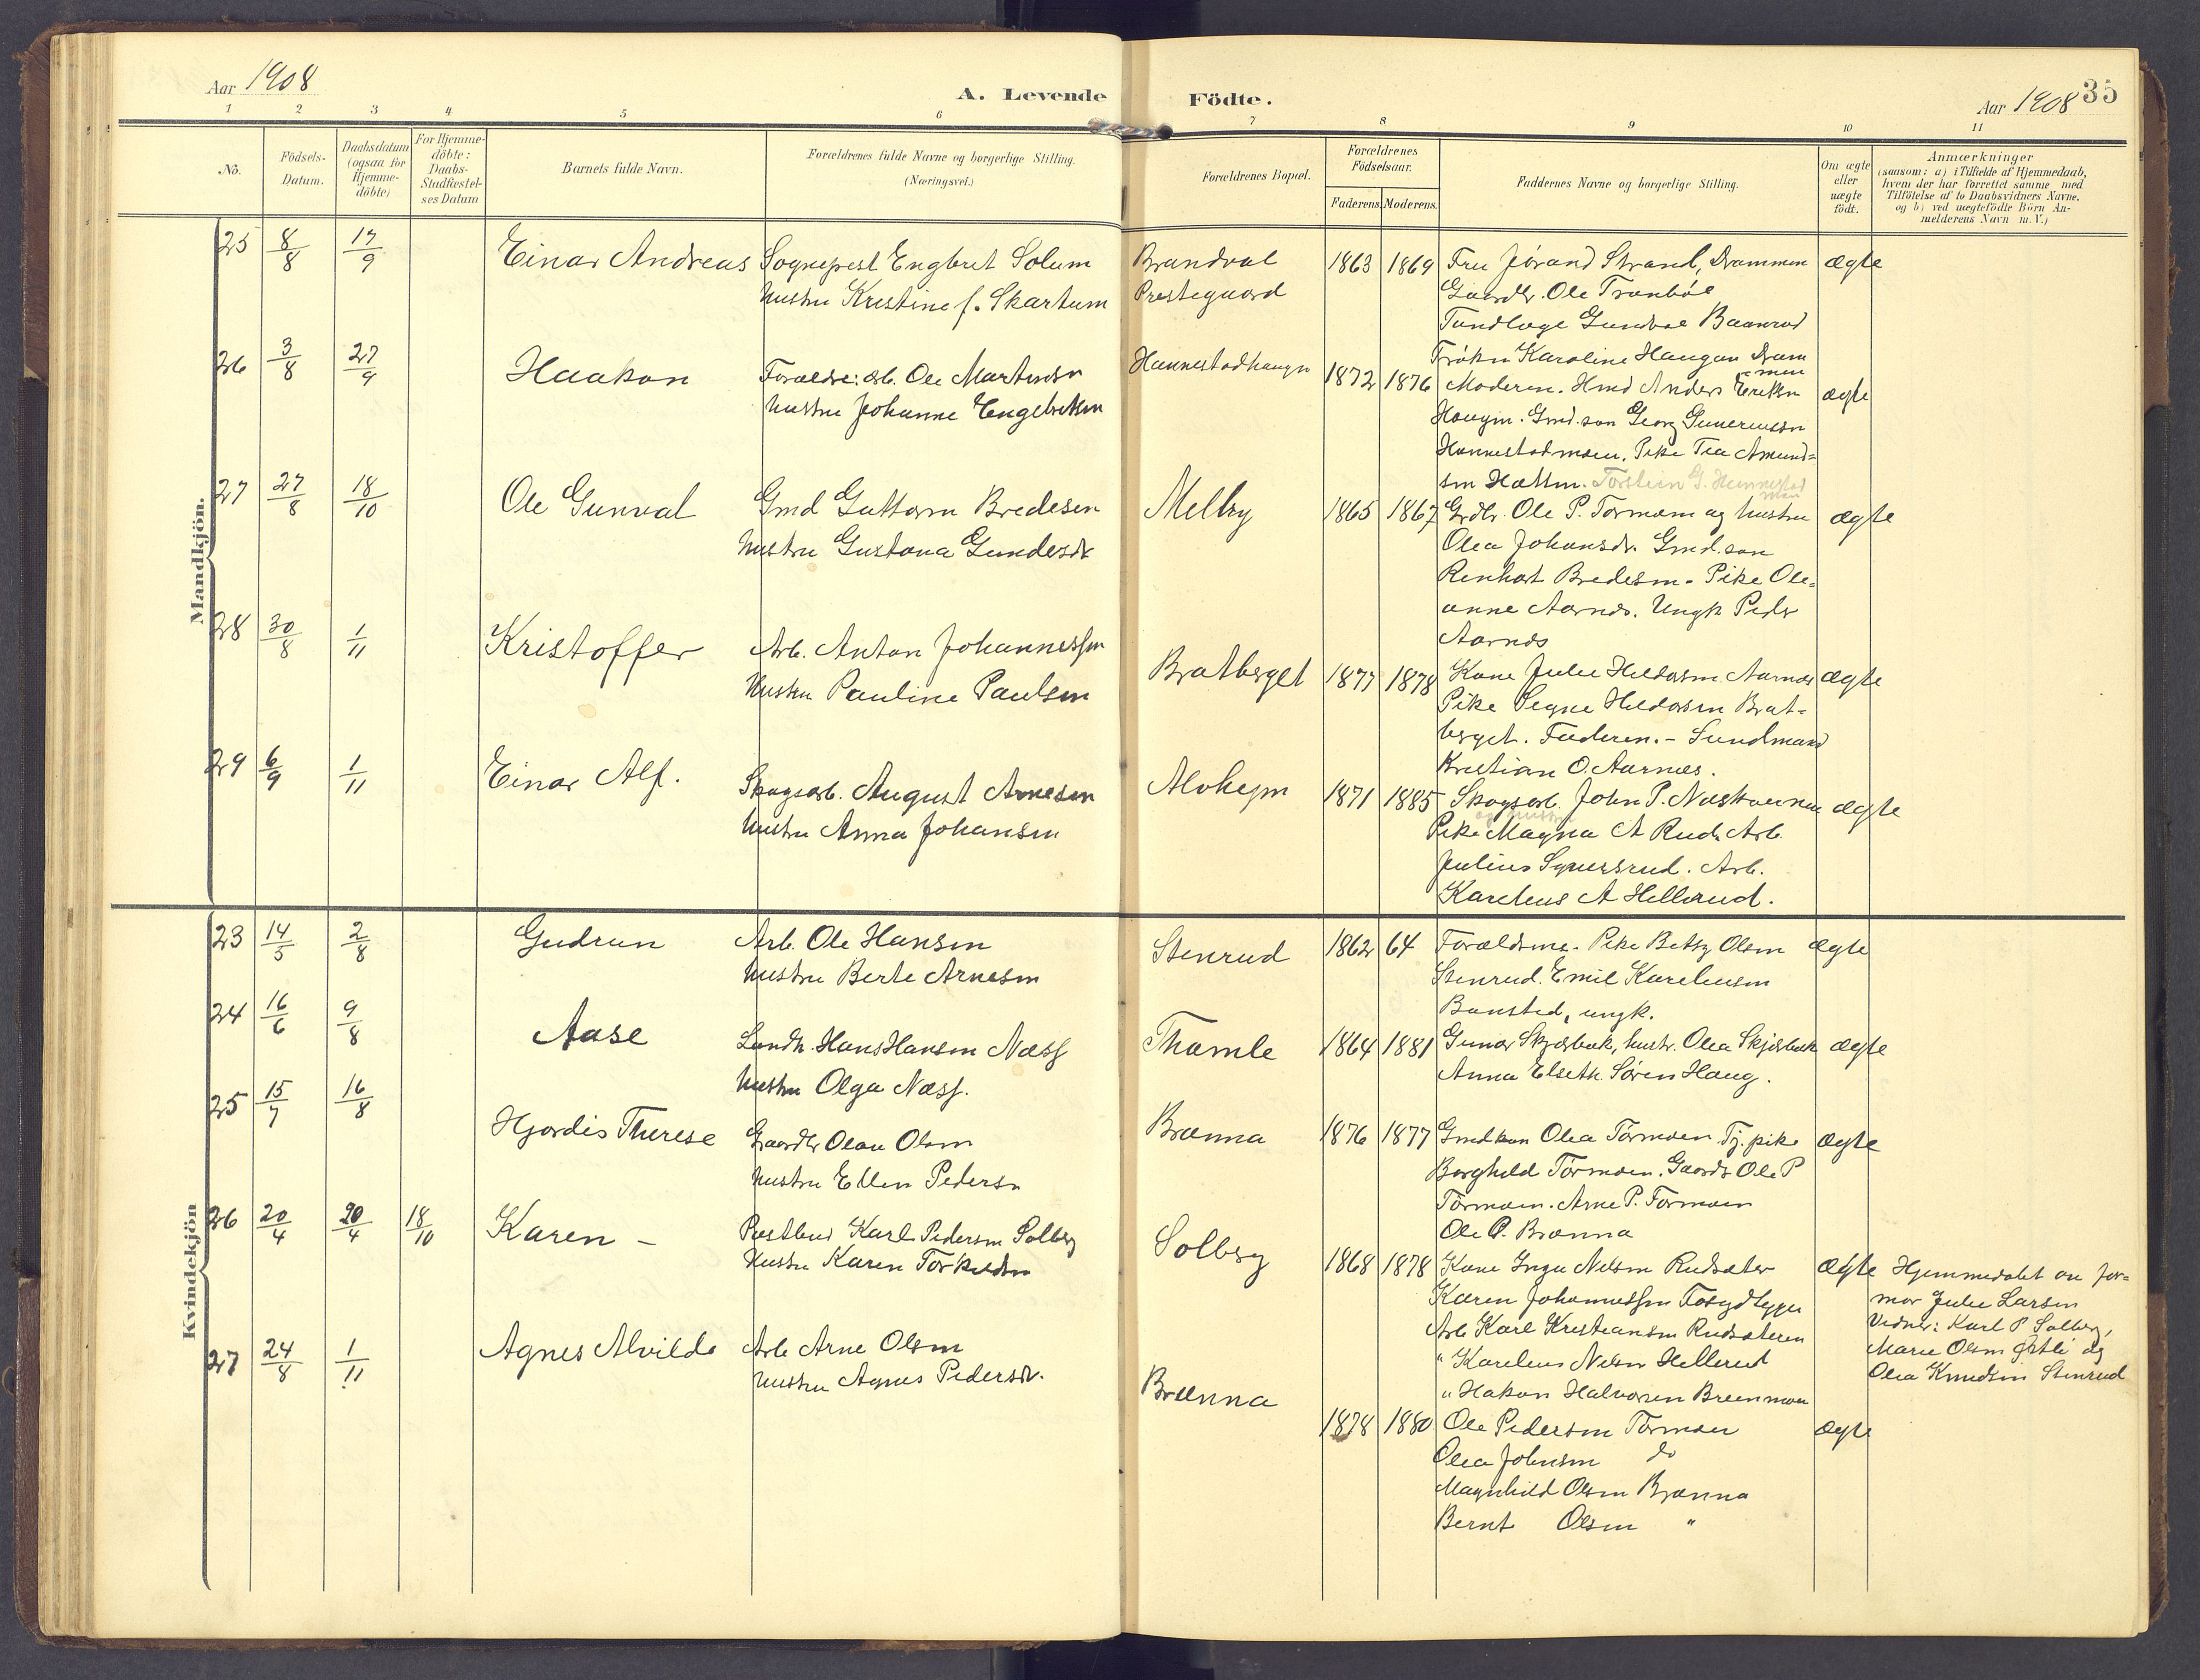 Aar 1908
A. Levende
Födte.
Aar 1908
35
1 2 3 4 5 6 7 8 9 10 11
No.
Födsels-
Datum.
Daabsdatum
(ogsaa for
Hjemme-
döbte)
For Hjemme-
döbte:
Daabs-
Stadfæstel-
ses Datum
Barnets fulde Navn.
Forældrenes fulde Navne og borgerlige Stilling.
(Næringsvei.)
Forældrenes Bopæl.
Forældrenes
Födselsaar.
Faderens.
Moderens.
Faddernes Navne og borgerlige Stilling.
Om ægte
eller
uægte
födt.
Anmærkninger
(saasom: a) i Tilfælde af Hjemmedaab,
hvem der har forrettet samme med
Tilföielse af to Daabsvidners Navne.
og b) ved uægtefödte Börn An-
melderens Navn m. V.)
Mandkjön.
25 8/8 17/9 Einar Andreas
Sogneprest Engbret Solum
hustru Kristine f. Skartum
Brandval
Prestegaard
1863 1869
Fru Jørand Strand, Drammen
Gaardbr. Ole Tranbøl
Tandlæge Gundval Baanrud
Frøken Karoline Haugan Dram
men
ægte
26 3/8 27/9 Haakon
Forældre: arb. Ole Martinsen
hustru Johanne Engebretsen
Hannestadhaugen
1872 1876
Moderen. Hmd Anders Eriksen
Haugen. Gmd.søn Georg Guneriussen
Hannestadmoen. Pike Tea Amund=
sen Hætten. Torstein G. Hennestad
moen
ægte
27 27/8 18/10 Ole Gunval
Gmd Guttorm Bredesen
hustru Gustava Gundesdr
Melby
1865 1867
Grdbr. Ole P. Tormoen og hustru
Olea Johansdr. Gmd.søn
Renhart Bredesen - Pike Ole=
anne Aarnæs. Ungk Peder
Aarnæs
ægte
28 30/8 1/11 Kristoffer
Arb. Anton Johannessen
Hustru Pauline Paulsen
Bratberget
1877 1878
Kone Julie Hildorsen Aarnæs
Pike Signe Hildorsen Brat=
berget. Faderen. - Sundmand
Kristian O. Aarnæs.
ægte
29 6/9 1/11 Einar Alf.
Skogsarb. August Arnesen
hustru Anna Johansen
1871 1885
Skogsarb. John P. Næstvernen
og hustru
Pike Magna A Rud. Arb.
Julius Synersrud. Arb.
Karelius A Hellerud.
ægte
Kvindekjön
23 14/5 2/8 Gudrun
Arb. Ole Hansen
hustru Berte Arnesen
Stenrud
1862 64
Forældrene - Pike Betsy Olsen
Stenrud. Emil Kareliusen
Banstad, ungk.
ægte
24 16/6 9/8 Aase
Landh. Hans Hansen Næss
hustru Olga Næss.
Thomle
1864 1881
Gunar Skjærbæk, hustr. Olea Skjærbæk
Anna Elseth. Søren Haug.
ægte
25 15/7 16/8 Hjordis Therese
Gaardbr Olau Olsen
hustru Ellen Pedersen
Brænna
1876 1877
Gmdkon Olea Tormoen. Tj. pike
Borghild Tormoen. Gaardb Ole P
Tormoen. Arne P. Tormoen
Ole P. Brænna
ægte
26 20/4 20/4 18/10 Karen -
Postbud Karl Pedersen Solberg
Hustru Karen Torkildsen
Solberg
1868 1878
Kone Inga Nilsen Rudsæter
Karen Johannessen
Arb Karl Kristiansen Rudsæteren
" Karelius Nilsen Hellerud
" Hakon Halvorsen Breenmoen
ægte
Hjemmedøbt av for=
mor Julie Larsen
Vidner: Karl P. Solberg,
Marie Olsen og
Olea Knudsen Stenrud
27 24/8 1/11 Agnes Alvilde
Arb Arne Olsen
hustru Agnes Pedersdr.
Brænna
1878 1880
Ole Pedersen Tormoen
Olea Johnsen do
Magnhild Olsen Brænna
Bernt Olsen "
ægte